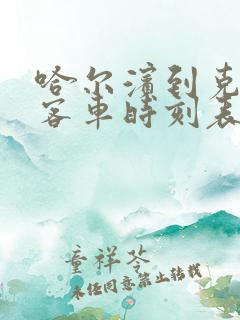 哈尔滨到克
客车时刻表
童祥苓
未经同意禁止转载